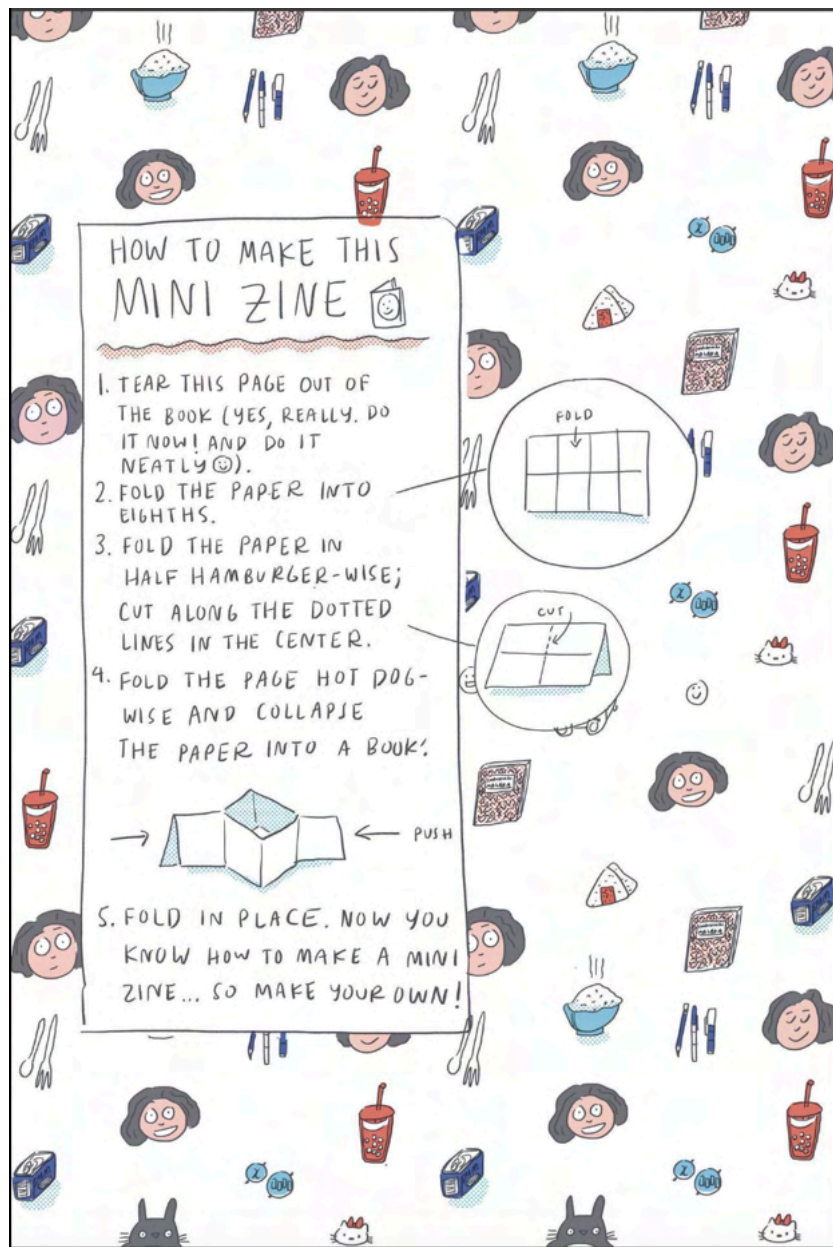 HOW TO MAKE THIS
MINI ZINE
1. TEAR THIS PAGE OUT OF
THE BOOK (YES, REALLY. DO
IT NOW! AND DO IT
NEATLY☺).
2. FOLD THE PAPER INTO
EIGHTHS.
FOLD
3. FOLD THE PAPER IN
HALF HAMBURGER-WISE;
CUT ALONG THE DOTTED
LINES IN THE CENTER.
CUT
4. FOLD THE PAGE HOT DOG-
WISE AND COLLAPSE
THE PAPER INTO A BOOK:
PUSH
5. FOLD IN PLACE. NOW YOU
KNOW HOW TO MAKE A MINI
ZINE... SO MAKE YOUR OWN!